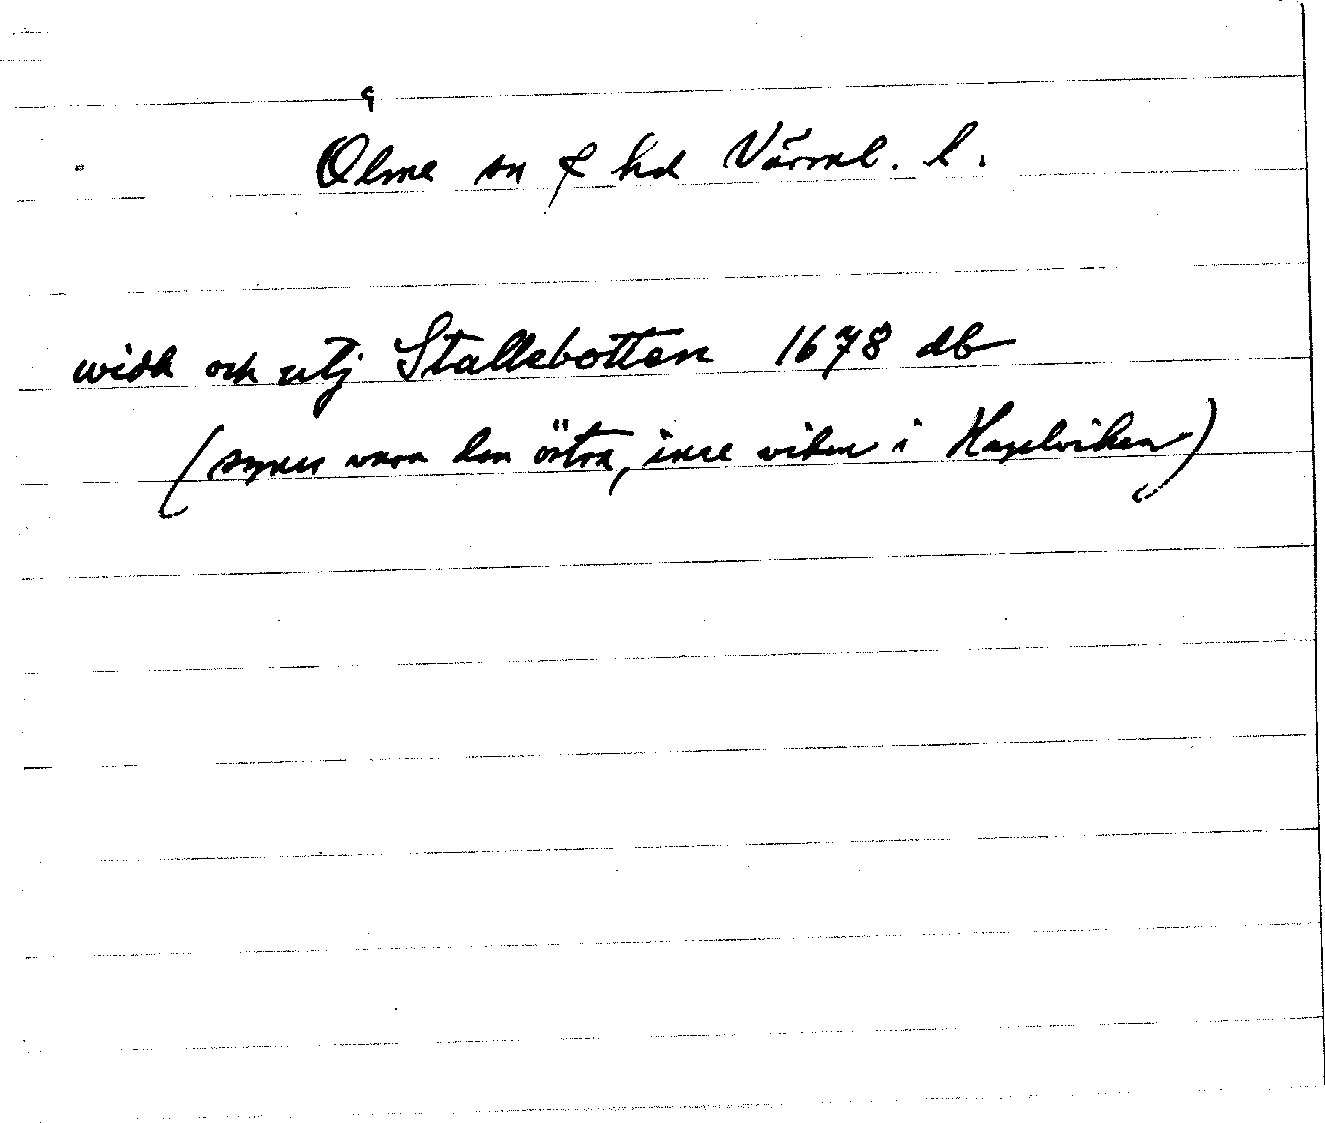 Ölme sn & hd Värml. l.
widh och utj Stallebotten 1678 db
(synes vara den östra, inre viken i Hagelviken)